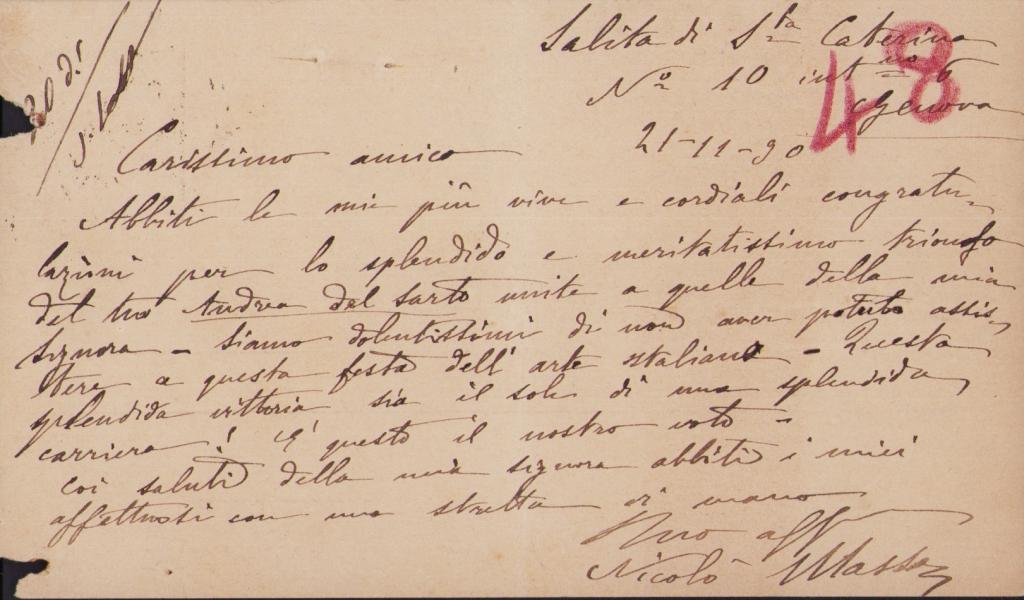 Salita di S.ta Caterina
No 10 int.no 6
Genova
48
21-11-90
Carissimo amico
Abbiti le mie più vive e cordiali congratu-
lazioni per lo splendido e meritatissimo trionfo
del tuo Andrea del Sarto unite a quelle della mia
signora - Siamo dolentissimi di non aver potuto assis-
tere a questa festa dell'arte italiana - Questa
splendida vittoria sia il sole di una splendida
carriera! È questo il nostro voto -
Coi saluti della mia signora abbiti i miei
affettuosi con una stretta di mano
Tuo aff
Nicolò Massa